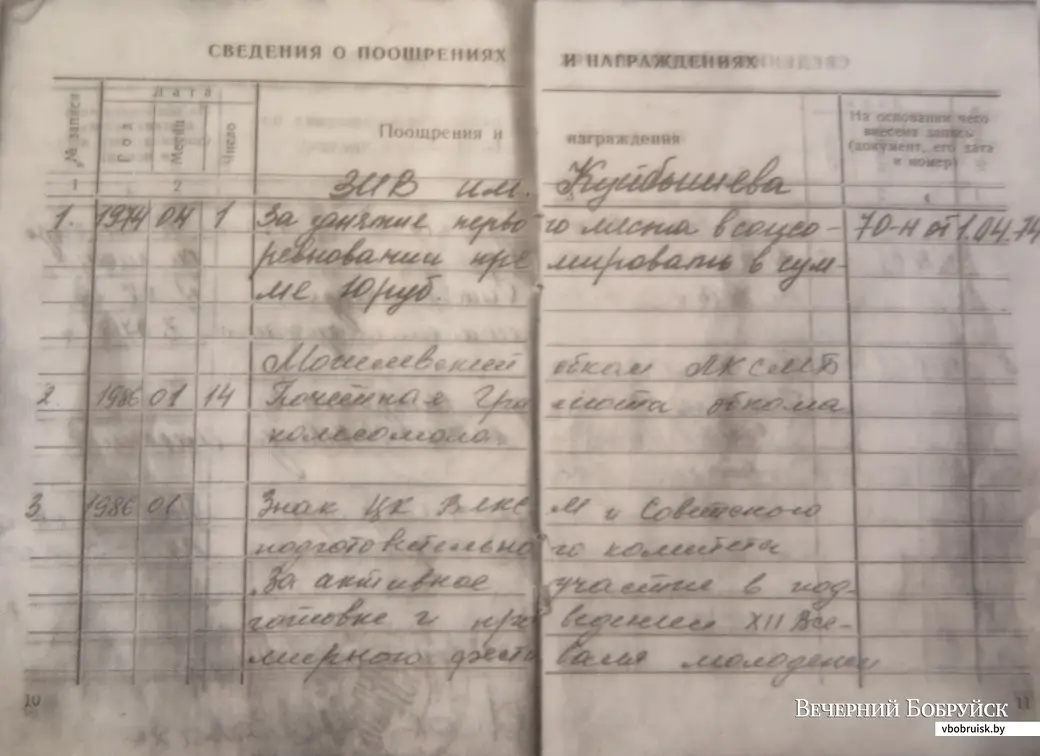 СВЕДЕНИЯ О ПООЩРЕНИЯХ И НАГРАЖДЕНИЯХ
№ записи
Дата
Год
Месяц
Число
Поощрения и награждения
На основании чего внесена запись (документ, его дата и номер)
1 2 4
ЗИВ им. Куйбышева
1. 1974 04 1 За занятие первого места в соцсо- 70-н от 1.04.74
ревновании премировать в сум-
ме 10 руб.
Могилевский обком ЛКСМБ
2. 1986 01 14 Почетная Грамота обкома
комсомола
3 1986 01 Знак ЦК ВЛКСМ и Советского
подготовительного комитета
За активное участие в под-
готовке и проведении XII Все-
мирного фестиваля молодежи
10 11
ВЕЧЕРНИЙ БОБРУЙСК
vbobruisk.by